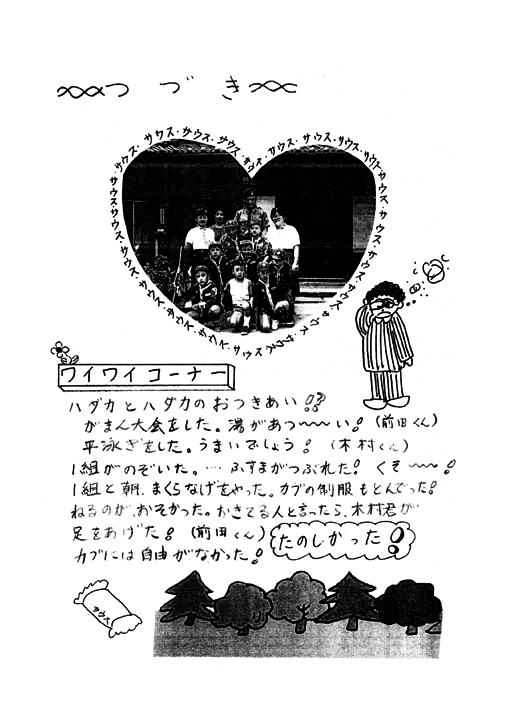 つづき
サウス・サウス・サウス・サウス・サウス・サウス・サウス・サウス・サウス・サウス・サウス・サウス
ワイワイコーナー
ハダカとハダカのおつきあい!?
がまん大会をした。湯があつ〜〜い!(前田くん)
平泳ぎをした。うまいでしょう!(木村くん)
1組がのぞいた。…ふすまがつぶれた!くそ〜〜!
1組と朝、まくらなげをやった。カブの制服もとんでった!
ねるのが、おそかった。おきてる人と言ったら、木村君が
足をあげた!(前田くん)
たのしかった!
カブには自由がなかった!
サウス